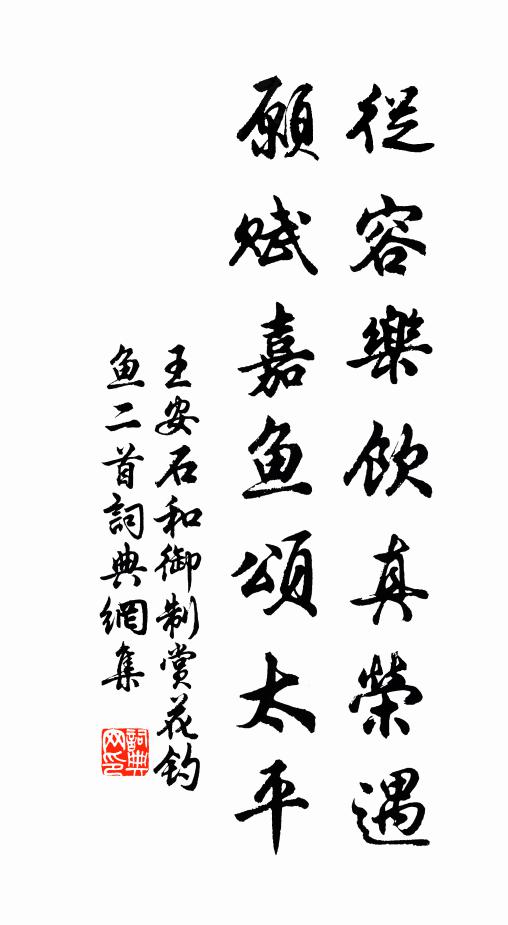 從容樂飲真榮遇
願賦嘉鱼頌太平
王安石和御制賞花钓
鱼二首詞典網集
詞典
网印